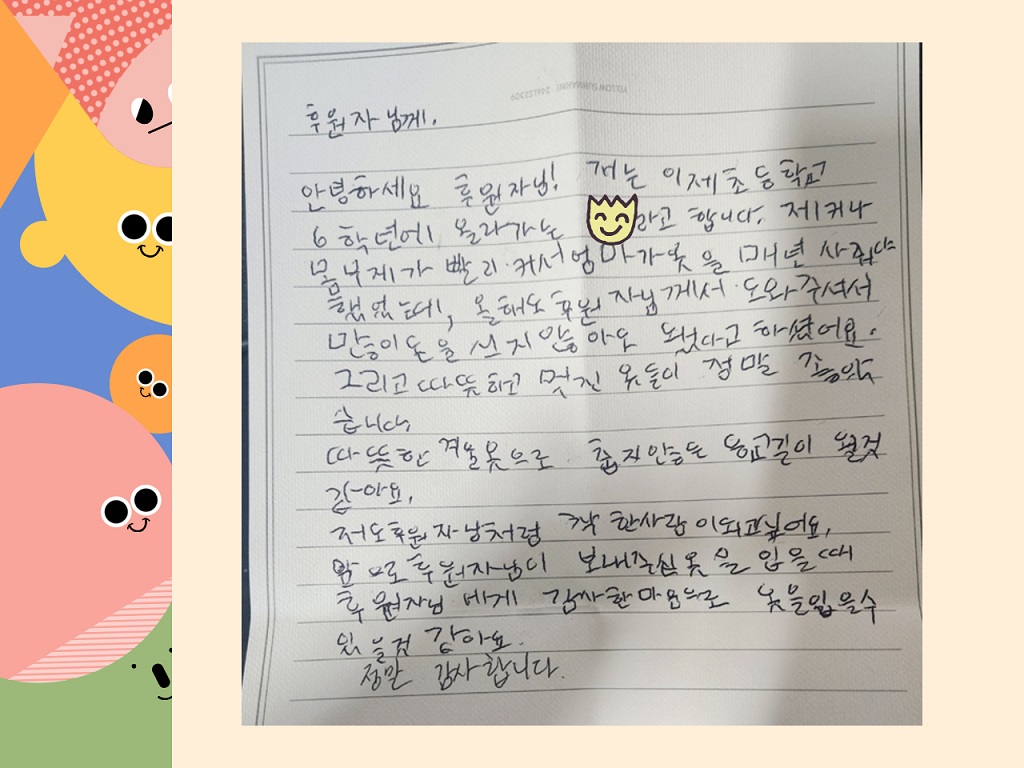 후원자 님께.
안녕하세요 후원자님! 저는 이제 초등학교
6학년에 올라가는 라고 합니다. 제 키나
몸무게가 빨리 커서 엄마가 옷을 매년
했었는데, 올해도 후원자님께서 도와주셔서
많이 돈을 쓰지 않아도 됐다고 하셨어요.
그리고 따뜻하고 멋진 옷들이 정말 좋았
습니다
따뜻한 겨울옷으로 춥지않은 등교길이 될것
같아요.
저도 후원자님처럼 착한사람이되고싶어요.
앞으로 후원자님이 보내주신옷을 입을때
후원자님에게 감사한마음으로 옷을입을수
있을것 같아요.
정말 감사합니다.